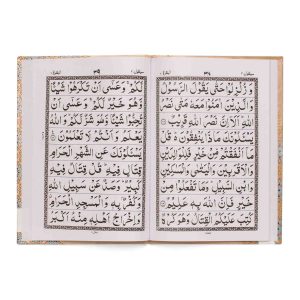 سيقول ٢ البقرة ٢
وَزُلْزِلُوْا حَتّٰى يَقُوْلَ الرَّسُوْلُ
وَالَّذِيْنَ اٰمَنُوْا مَعَهٗ مَتٰى نَصْرُ
اللّٰهِ اَلَاۤ اِنَّ نَصْرَ اللّٰهِ قَرِيْبٌ
يَسْـَٔلُوْنَكَ مَاذَا يُنْفِقُوْنَ قُلْ مَاۤ
اَنْفَقْتُمْ مِّنْ خَيْرٍ فَلِلْوَالِدَيْنِ
وَالْاَقْرَبِيْنَ وَالْيَتٰمٰى وَالْمَسٰكِيْنِ
وَابْنِ السَّبِيْلِ وَمَا تَفْعَلُوْا مِنْ
خَيْرٍ فَاِنَّ اللّٰهَ بِهٖ عَلِيْمٌ
كُتِبَ عَلَيْكُمُ الْقِتَالُ وَهُوَ كُرْهٌ
سيقول ٢ ٣٥ البقرة ٢
لَّكُمْ وَعَسٰٓى اَنْ تَكْرَهُوْا شَيْـًٔا
وَّهُوَ خَيْرٌ لَّكُمْ وَعَسٰٓى اَنْ
تُحِبُّوْا شَيْـًٔا وَّهُوَ شَرٌّ لَّكُمْ وَاللّٰهُ
يَعْلَمُ وَاَنْتُمْ لَا تَعْلَمُوْنَ
يَسْـَٔلُوْنَكَ عَنِ الشَّهْرِ الْحَرَامِ
قِتَالٍ فِيْهِ قُلْ قِتَالٌ فِيْهِ
كَبِيْرٌ وَصَدٌّ عَنْ سَبِيْلِ اللّٰهِ
وَكُفْرٌۢ بِهٖ وَالْمَسْجِدِ الْحَرَامِ
وَاِخْرَاجُ اَهْلِهٖ مِنْهُ اَكْبَرُ